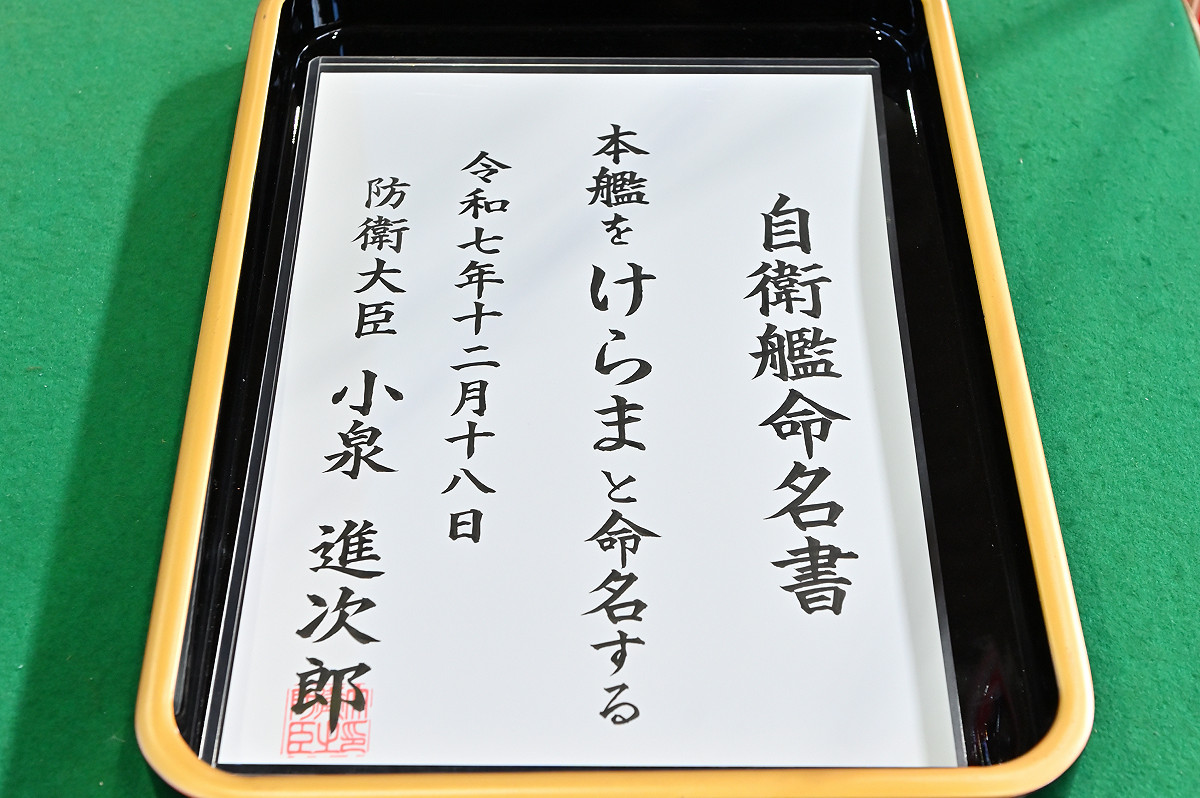 自衛艦命名書
本艦をけらまと命名する
令和七年十二月十八日
防衛大臣 小泉 進次郎